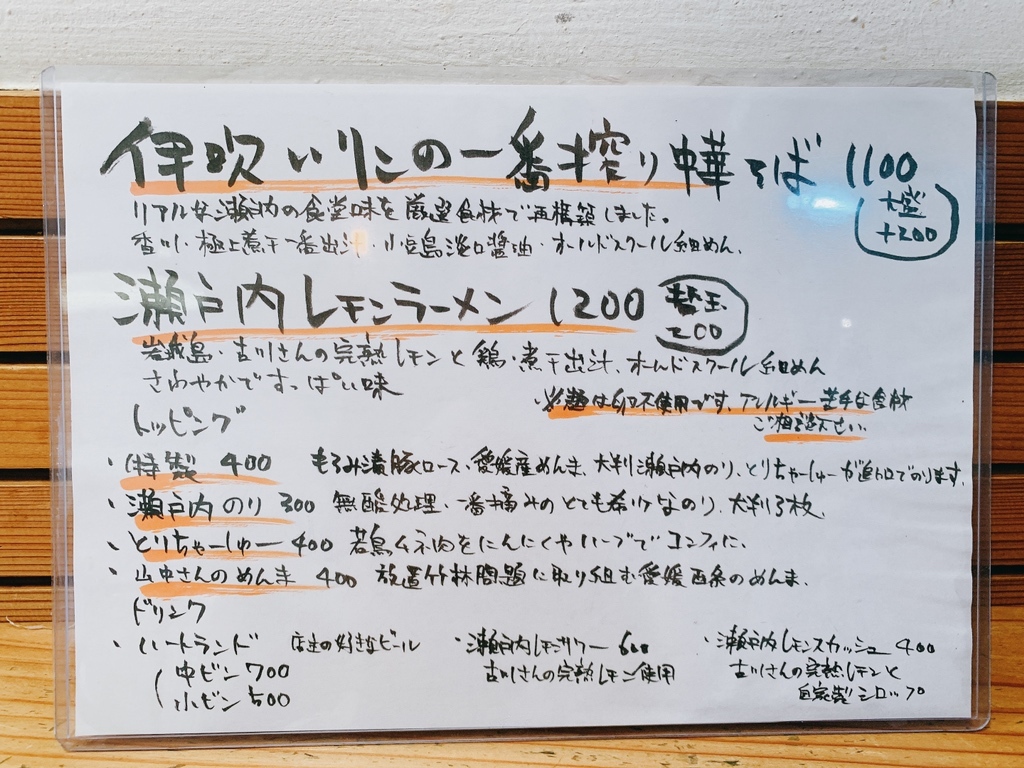 伊吹いりこの一番搾り中華そば 1100
大盛
+200
リアルな瀬戸内の食堂味を厳選食材で再構築しました。
香川・極上煮干一番出汁・小豆島淡口醤油・オールドスクール細めん、
瀬戸内レモンラーメン 1200
替玉
200
岩城島・古川さんの完熟レモンと鶏・煮干出汁、オールドスクール細めん
さわやかですっぱい味
※麺は卵不使用です、アレルギー苦手な食材
ご相談下さい
トッピング
・特製 400 もろみ漬豚ロース・愛媛産めんま、大判瀬戸内のり、とりちゃーしゅーが追加でのります。
・瀬戸内のり 300 無酸処理、一番摘みのとても希少なのり、大判3枚、
・とりちゃーしゅー 400 若鳥ムネ肉をにんにくやハーブでコンフィに、
・山中さんのめんま 400 放置竹林問題に取り組む愛媛西条のめんま、
ドリンク
・ハートランド 店主の好きなビール
中ビン 700
小ビン 500
・瀬戸内レモンサワー 600
古川さんの完熟レモン使用
・瀬戸内レモンスカッシュ 400
古川さんの完熟レモンと
自家製シロップ